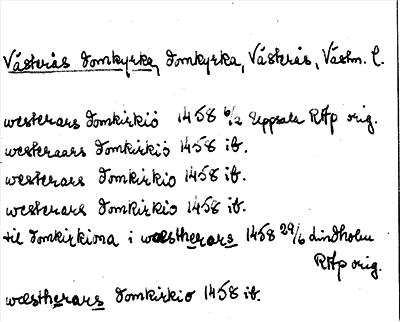 Västerås domkyrka, domkyrka, Västerås, Västm. l.
westerars domkirkio 1458 6/2 Uppsala RAp orig.
westeraars domkirkio 1458 ib.
westerars domkirkio 1458 ib.
westerars domkirkio 1458 ib.
til domkirkiona i wæstherars 1458 29/6 Lindholm
RAp orig.
wæstherars domkirkio 1458 ib.